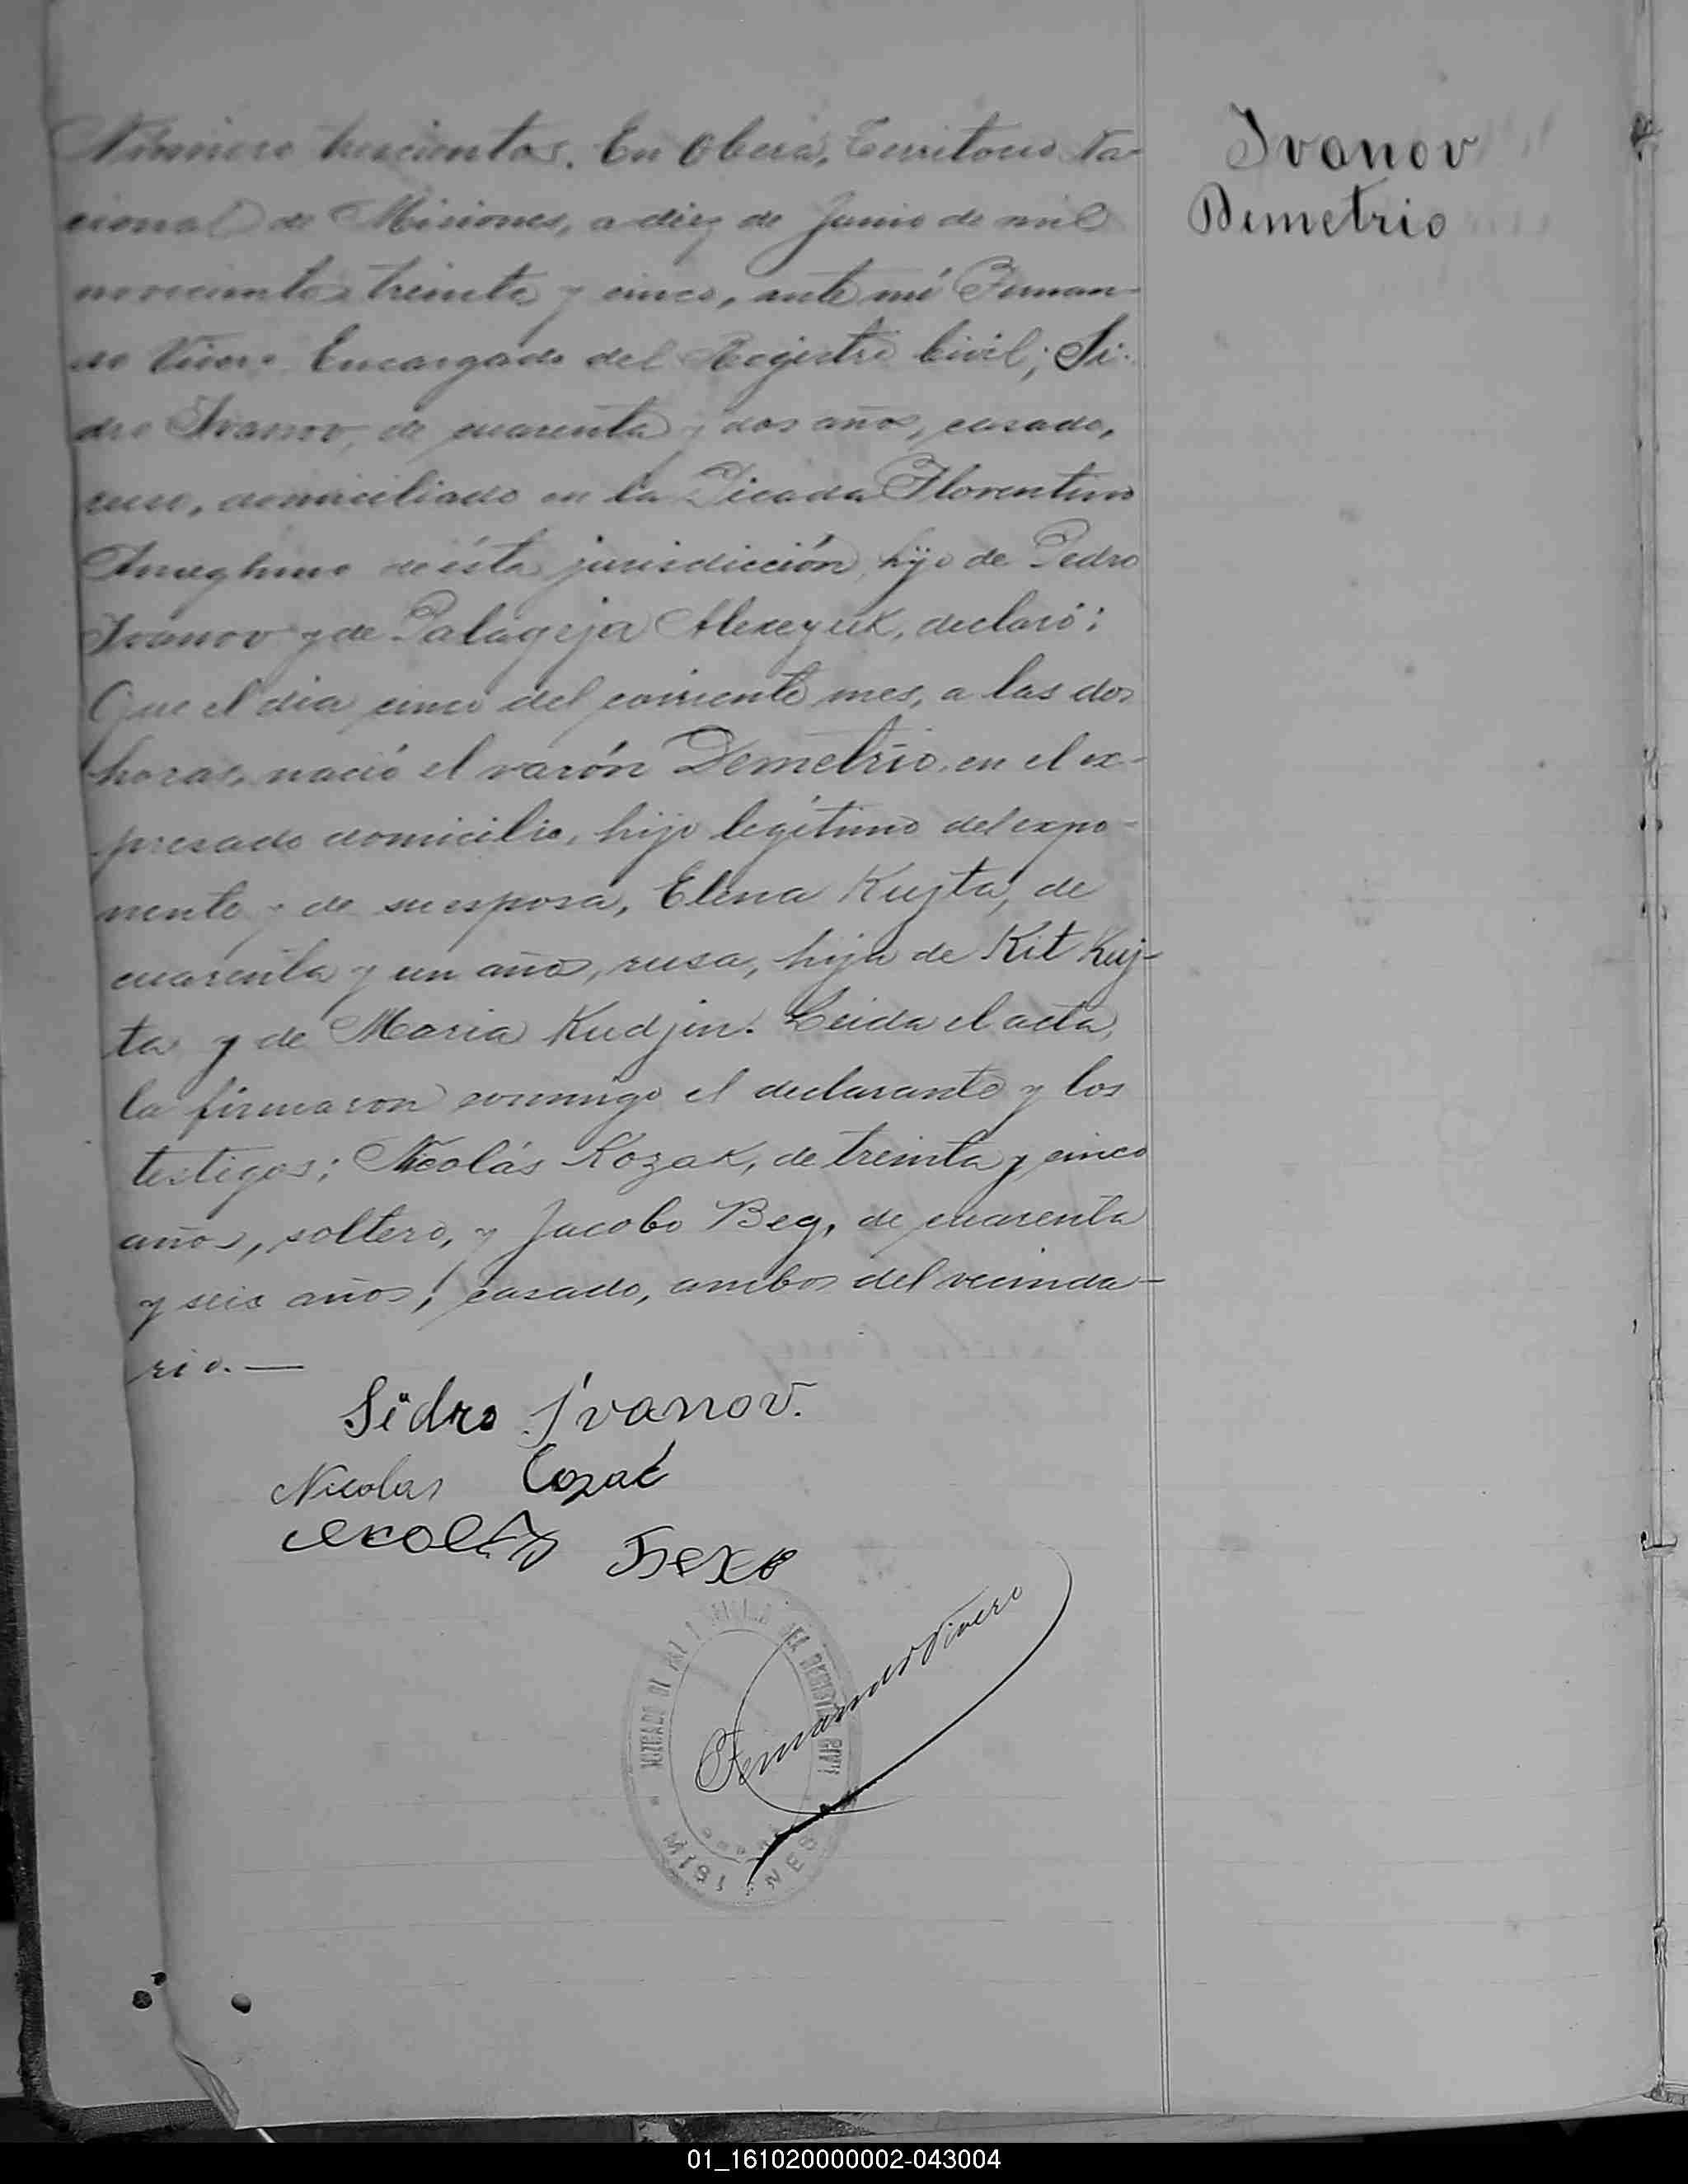 Ivanov
Demetrio
Número trescientos. En Oberá, Territorio Na-
cional de Misiones, a diez de Junio de mil
novecientos treinta y cinco, ante mí Fernan-
do Vivero Encargado del Registro Civil; Si-
dro Ivanov, de cuarenta y dos años, casado,
ruso, domiciliado en la Picada Florentino
Ameghino de ésta jurisdicción, hijo de Pedro
Ivanov y de Palageja Alexeyuk, declaró:
Que el dia cinco del corriente mes, a las dos
horas, nació el varón Demetrio, en el ex-
presado domicilio, hijo legítimo del expo-
nente y de su esposa, Elena Kujta, de
cuarenta y un años, rusa, hija de Kit Kuj-
ta y de Maria Kudjin. Leida el acta,
la firmaron conmigo el declarante y los
testigos; Nicolás Kozak, de treinta y cinco
años, soltero, y Jacobo Beg, de cuarenta
y seis años, casado, ambos del vecinda-
rio.—
Sidro Ivanov.
Nicolas Cozak
Бехв
Fernando Vivero
JUZGADO DE PAZ DEL REGISTRO CIVIL
MISIONES
01_161020000002-043004